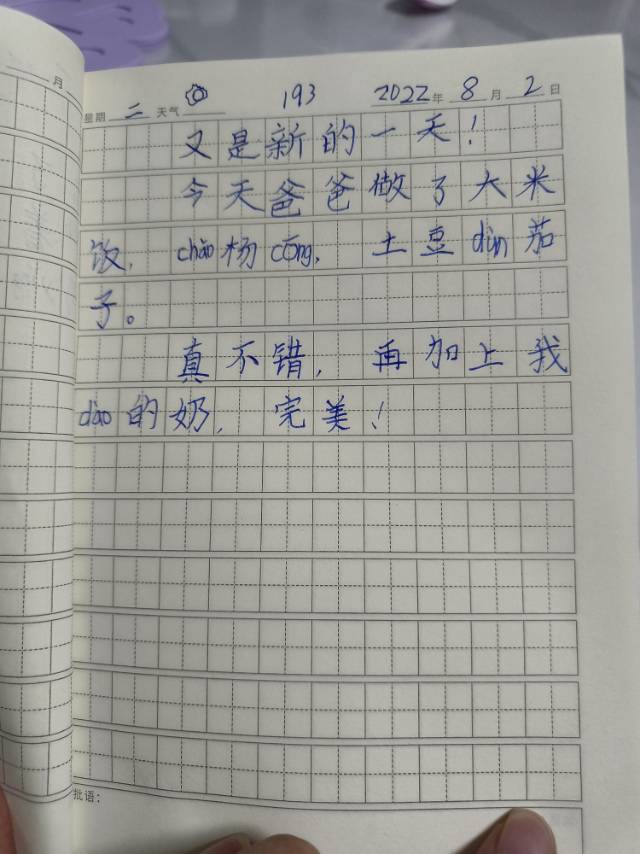 月
星期 二 天气 193 2022年 8月 2日
又是新的一天!
今天爸爸做了大米
饭，chǎo杨cōng，土豆dùn茄
子。
真不错，再加上我
dào的奶，完美!
批语：